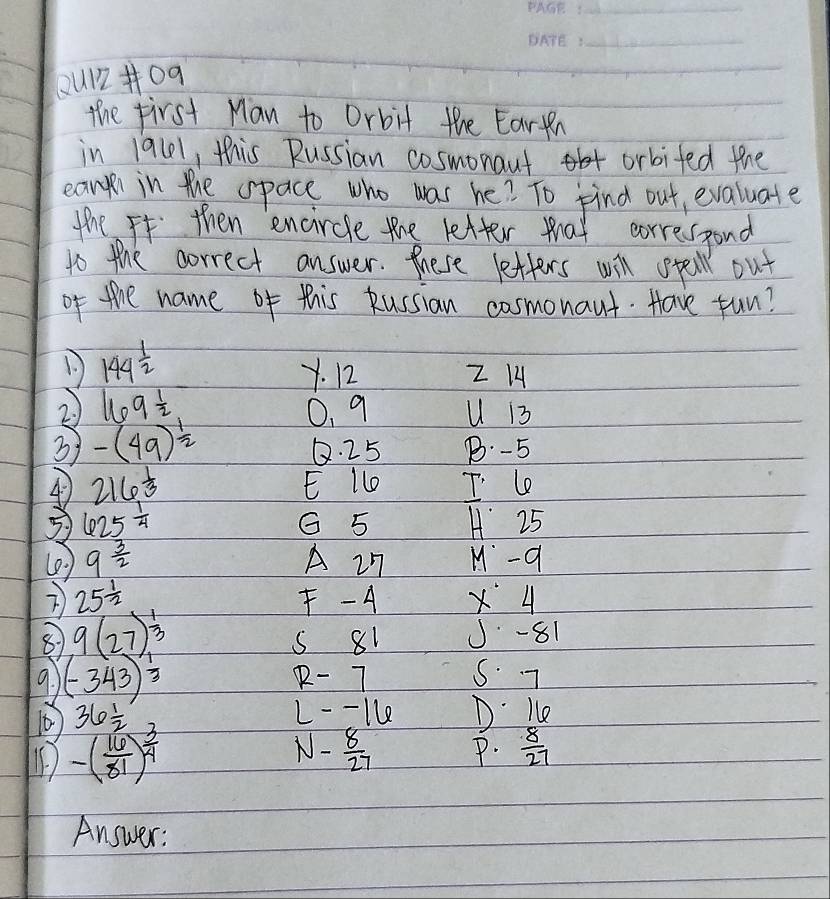 PAGE :
DATE :
QUIZ #09
the first Man to Orbit the Earth
in 1961, this Russian cosmonaut orbited the
earth in the space who was he? To find out, evaluate
the ff. then encircle the letter that correspond
to the correct answer. These letters will spell out
of the name of this Russian cosmonaut. Have fun!
1.) 144^{1/2} Y. 12 Z 14
2.) 169^{1/2} O. 9 U 13
3.) -(49)^{1/2} Q. 25 B. -5
4.) 216^{1/3} E 16 I. 6
5.) 625^{1/4} G 5 H. 25
6.) 9^{3/2} A 27 M. -9
7.) 25^{1/2} F -4 X. 4
8.) 9(27)^{1/3} S 81 J. -81
9.) (-343)^{1/3} R - 7 S. 7
10.) 36^{1/2} L - -16 D. 16
11.) -(16/81)^{3/4} N - 8/27 P. 8/27
Answer: